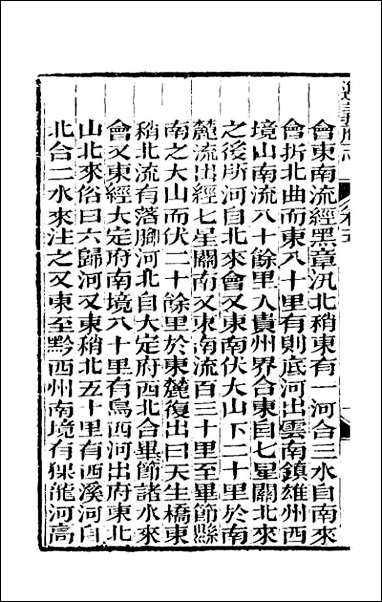 會東南流經黑章汛北稍東有一河合三水自南來
會折北曲而東八十里有則底河出雲南鎮雄州西
境山南流八十餘里入貴州界合東自七星關北來
之後所河自北來會又東南伏大山下二十里於南
麓流出經七星關南又東南流百三十里至畢節縣
南之大山而伏二十餘里於東麓復出曰天生橋東
稍北流有落腳河北自大定府西北合畢節諸水來
會又東經大定府南境八十里有烏西河出府東北
山北來俗曰六歸河又東稍北五十里有西溪河自
北合二水來注之又東至黔西州南境有猓龍河高